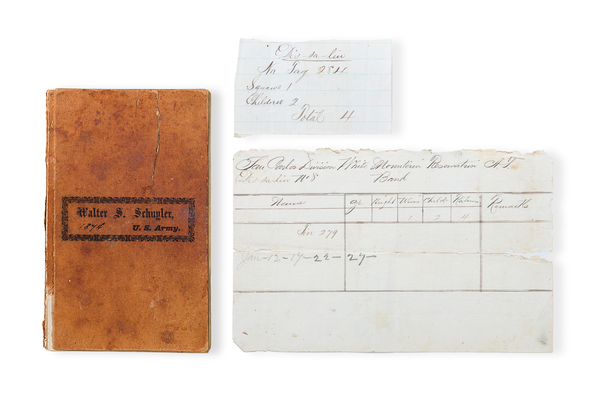 Walter S. Schuyler,
1876
U. S. Army.
Chis-da-lin
No Tag
Squaws 1
Children 2
Total 4
San Carlos Division White Mountain Reservation A.T.
Band
Name Age Height Wives Child Remarks
1 2 4
Jan-12-17-22-27-